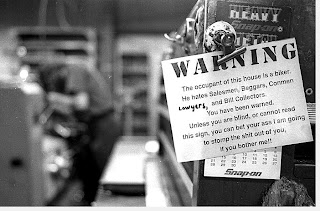 HEAVY
WARNING
The occupant of this house is a biker.
He hates Salesmen, Beggars, Conmen
Lawyers, and Bill Collectors.
You have been warned.
Unless you are blind, or cannot read
this sign, you can bet your ass I am going
to stomp the shit out of you,
if you bother me!!
Snap-on